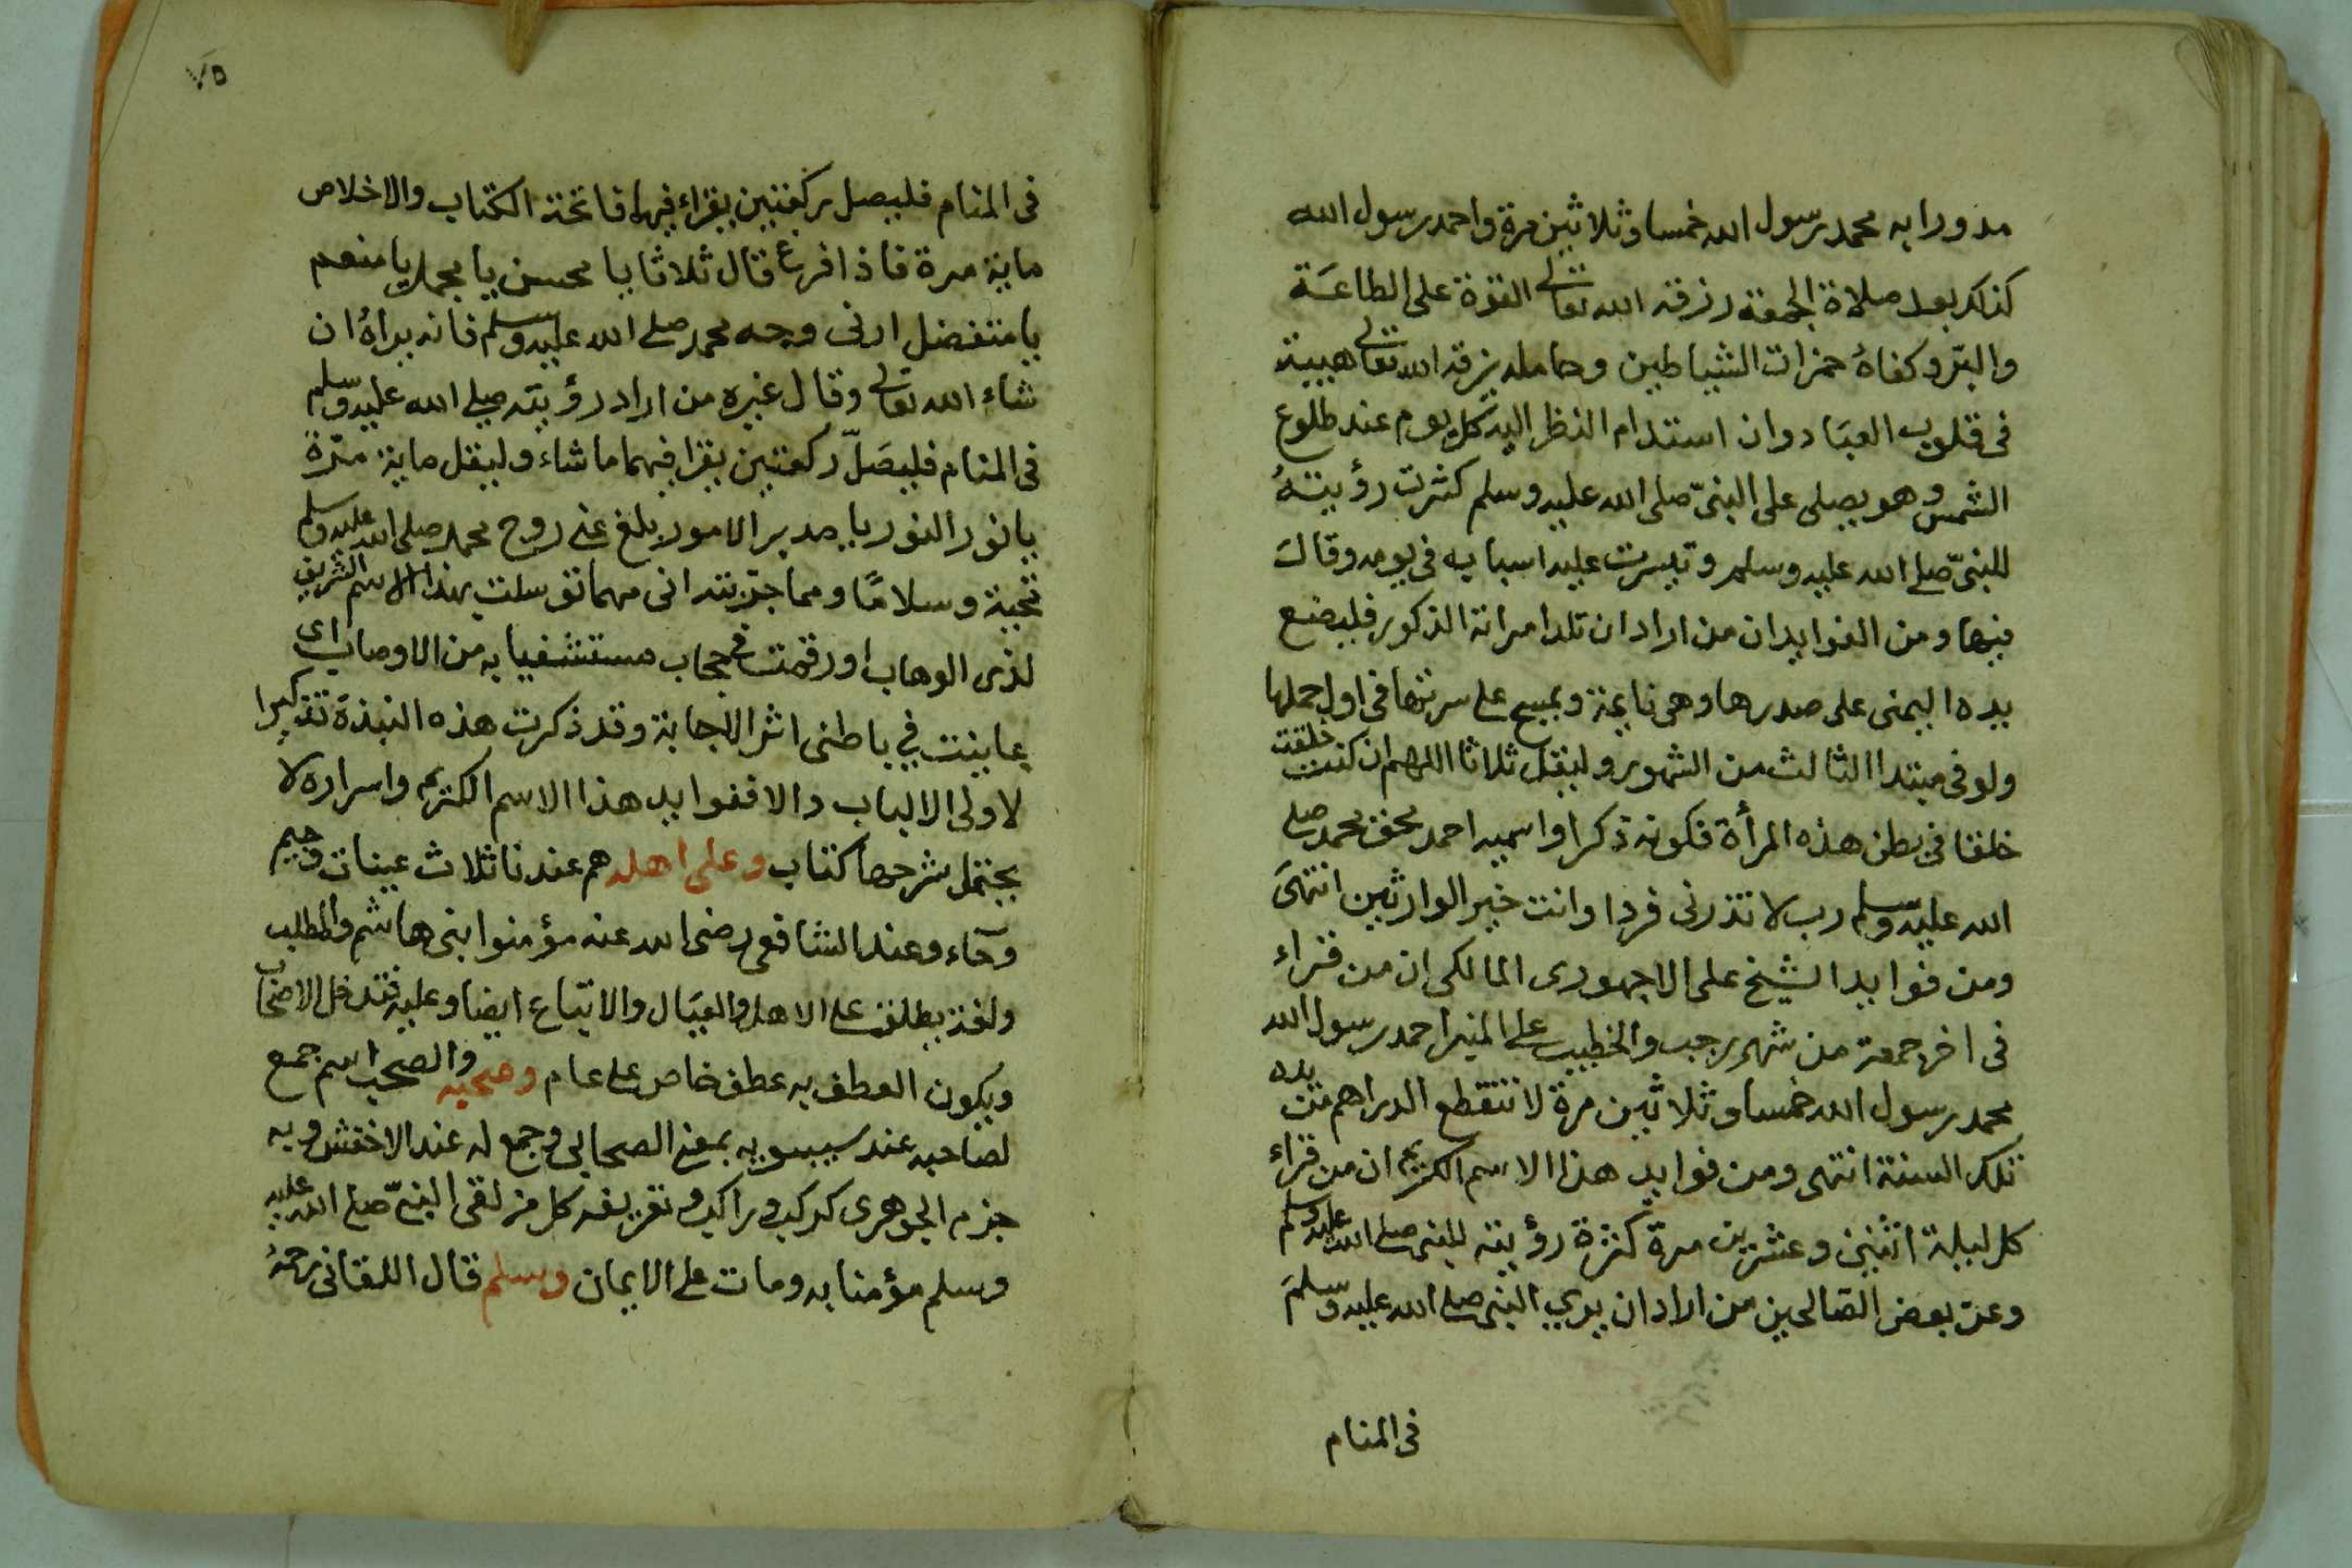 مدورا به محمد رسول الله خمسا وثلاثين مرة واحمد رسول الله
كذلك بعد صلاة الجمعة رزقه الله تعالى القوة على الطاعة
والبر وكفاه همزات الشياطين وحامله يرزقه الله تعالى هيبة
فى قلوب العباد وان استدام النظر اليه كل يوم عند طلوع
الشمس وهو يصلى على النبى صلى الله عليه وسلم كثرت رؤيته
للنبى صلى الله عليه وسلم وتيسرت عليه اسبابه فى يومه وقالت
فيها ومن الفوايد ان من اراد ان تلد امراته الذكور فليضع
يده اليمنى على صدرها وهى نايمة ويمسح على سرتها فى اول حملها
ولو فى مبتدا الثالث من الشهور وليقل ثلاثا اللهم ان كنت خلقت
خلقا فى بطن هذه المرأة فكونه ذكرا واسميه احمد بحق محمد صلى
الله عليه وسلم رب لا تذرنى فردا وانت خير الوارثين انتهى
ومن فوايد الشيخ على الاجهورى المالكى ان من قراء
فى اخر جمعة من شهر رجب والخطيب على المنبر احمد رسول الله
محمد رسول الله خمسا وثلاثين مرة لا تنقطع الدراهم من يده
تلك السنة انتهى ومن فوايد هذا الاسم الكريم ان من قراء
كل ليلة اثنين وعشرين مرة كثرة رؤيته للنبى صلى الله عليه وسلم
وعن بعض الصالحين من اراد ان يرى النبى صلى الله عليه وسلم
فى المنام
٧٥
فى المنام فليصل ركعتين يقراء فيها فاتحة الكتاب والاخلاص
ماية مرة فاذا فرغ قال ثلاثا يا محسن يا مجمل يا منعم
يا متفضل ارنى وجه محمد صلى الله عليه وسلم فانه يراه ان
شاء الله تعالى وقال غيره من اراد رؤيته صلى الله عليه وسلم
فى المنام فليصل ركعتين يقرا فيهما ما شاء وليقل ماية مرة
يا نور النور يا مدبر الامور بلغ عنى روح محمد صلى الله عليه وسلم
تحية وسلاما ومما جربته انى مهما توسلت بهذا الاسم الشريف
لذى الوهاب اورقمته فى حجاب مستشفيا به من الاوصاب اى
عاينت في باطنى اثر الاجابة وقد ذكرت هذه النبذة تذكيرا
لاولى الالباب والا ففوايد هذا الاسم الكريم واسراره لا
يحتمل شرحها كتاب وعلى اهله هم عندنا ثلاث عينات وجيم
وحاء وعند الشافعى رضى الله عنه مؤمنوا بنى هاشم والمطلب
ولغة يطلق على الاهل والعيال والاتباع ايضا وعليه فتدخل الاصحاب
ويكون العطف به عطف خاص على عام وصحبه والصحب اسم جمع
لصاحبه عند سيبويه بمعنى الصحابى وجمع له عند الاخفش وبه
جزم الجوهرى كركب وراكب وتعريفه كل من لقى النبى صلى الله عليه
وسلم مؤمنا به ومات على الايمان وسلم قال اللقانى رحمه